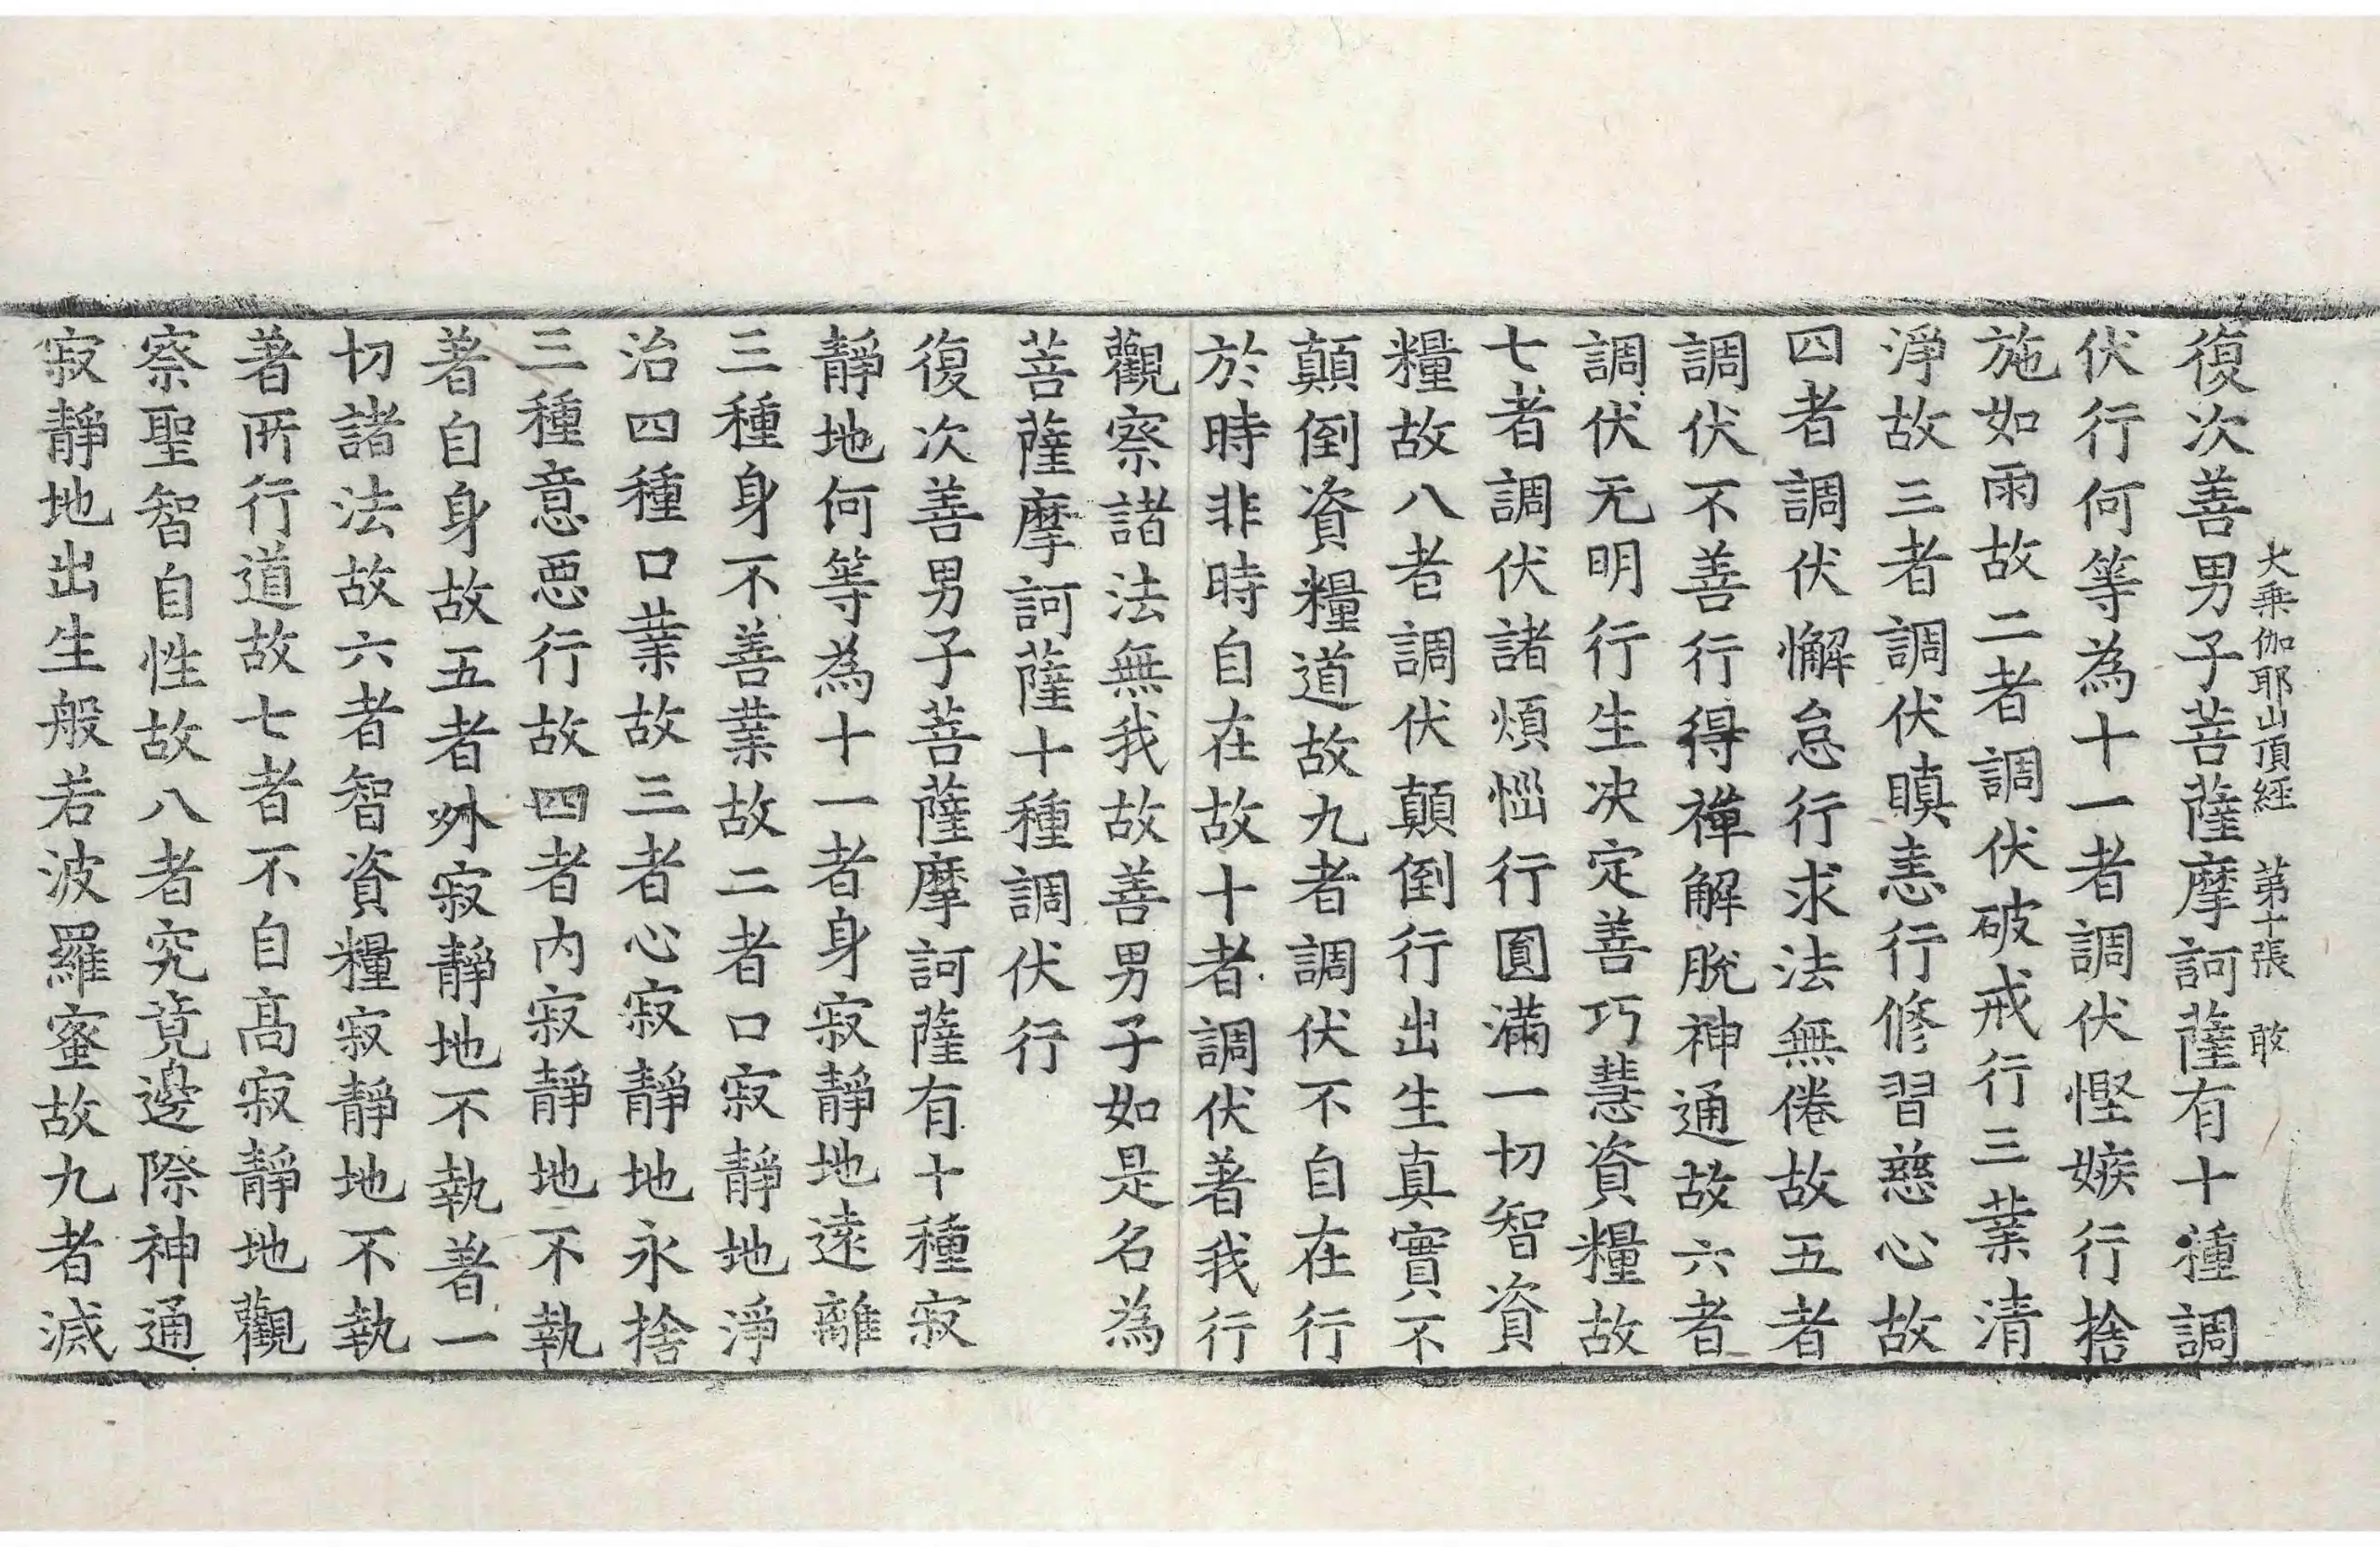 大乗伽耶山頂経　第十張　敢
復次善男子菩薩摩訶薩有十種調
伏行何等為十一者調伏慳嫉行捨
施如雨故二者調伏破戒行三業清
淨故三者調伏瞋恚行修習慈心故
四者調伏懈怠行求法無倦故五者
調伏不善行得禅解脫神通故六者
調伏无明行生决定善巧慧資糧故
七者調伏諸煩惱行圎滿一切智資
糧故八者調伏顛倒行出生真實不
顛倒資糧道故九者調伏不自在行
於時非時自在故十者調伏著我行
觀察諸法無我故善男子如是名為
菩薩摩訶薩十種調伏行
復次善男子菩薩摩訶薩有十種寂
靜地何等為十一者身寂靜地遠離
三種身不善業故二者口寂靜地淨
治四種口業故三者心寂靜地永捨
三種意惡行故四者內寂靜地不執
著自身故五者外寂靜地不執著一
切諸法故六者智資糧寂靜地不執
著所行道故七者不自高寂靜地觀
察聖智自性故八者究竟邊際神通
寂靜地出生般若波羅蜜故九者滅